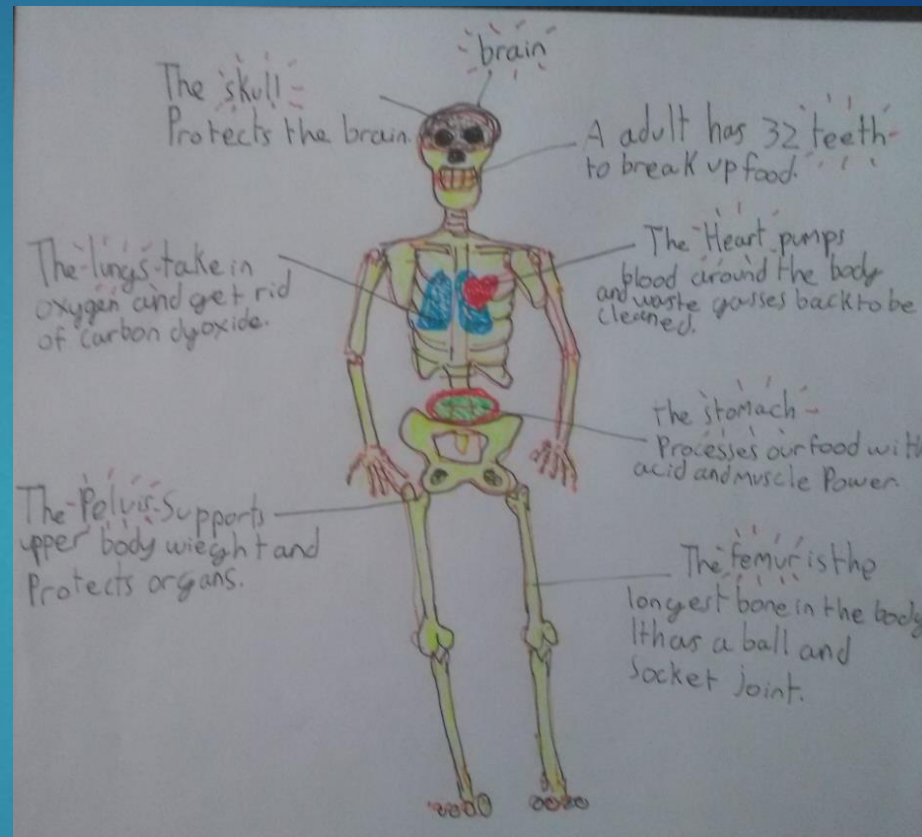 brain
The skull
Protects the brain.
A adult has 32 teeth
to break up food.
The lungs take in
oxygen and get rid
of carbon dyoxide.
The Heart pumps
blood around the body
and waste gasses back to be
cleaned.
The stomach
Processes our food with
acid and Muscle Power.
The Pelvis Supports
upper body wieght and
Protects organs.
The femur is the
longest bone in the body
It has a ball and
Socket joint.